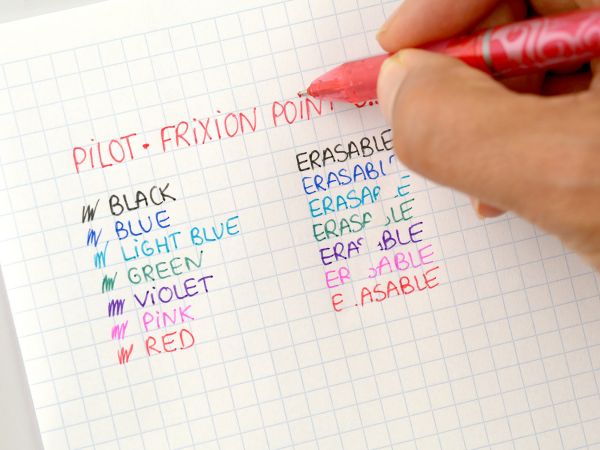 PiLOT · FRiXiON POiNT
BLACK
BLUE
LiGHT BLUE
GREEN
ViOLET
PiNK
RED
ERASABLE
ERASABL
ERASABLE
ERASABLE
ERASABLE
ERASABLE
ERASABLE